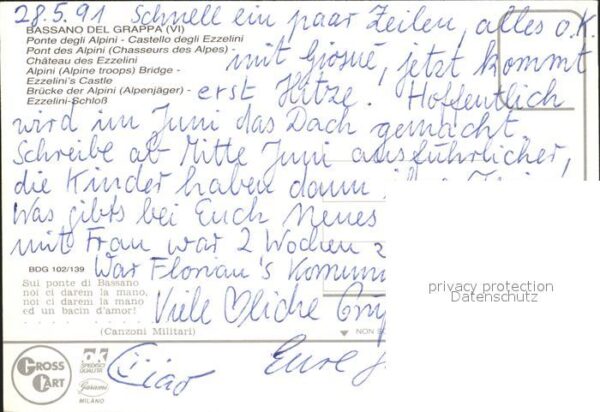 28.5.91 Schnell ein paar Zeilen, alles o.K.
BASSANO DEL GRAPPA (VI)
Ponte degli Alpini - Castello degli Ezzelini
Pont des Alpini (Chasseurs des Alpes) -
Château des Ezzelini
Alpini (Alpine troops) Bridge -
Ezzelini's Castle
Brücke der Alpini (Alpenjäger) -
Ezzelini-Schloß
mit Giosué, jetzt kommt
erst Hitze! Hoffentlich
wird im Juni das Dach gemacht.
Schreibe ab Mitte Juni ausführlicher,
die Kinder haben dann
Was gibts bei Euch Neues
mit Frau war 2 Wochen
War Florian's
Viele ♡liche
Ciao Eure
BDG 102/139
Sul ponte di Bassano
noi ci darem la mano,
noi ci darem la mano
ed un bacin d'amor!
(Canzoni Militari)
NON
GROSS CART
OK SPECIFICI QUALITÀ
Garami
MILANO
privacy protection
Datenschutz